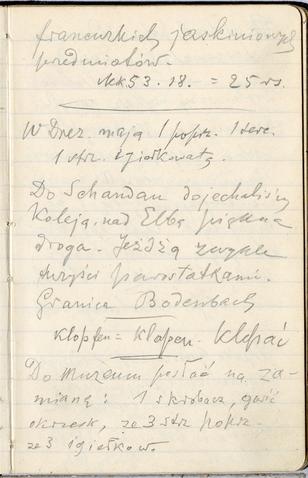 francuskich jaskiniowych
przedmiotów.
Mk 53. 18. = 25 rs.
W Drez. mają 1 poprz. 1 serc.
1 strz. igiełkowatą.
Do Schandau dojechaliśmy
Koleją, nad Elbą piękna
droga. Jeżdżą zwykle
wszyści parostatkami.
Granica Bodenbach
Klopfen = klapen - Klepać
Do Muzeum posłać na za-
mianę: 1 skrobacz, garść
okrzesk, ze 3 strz. poprz.
ze 3 igiełkow.